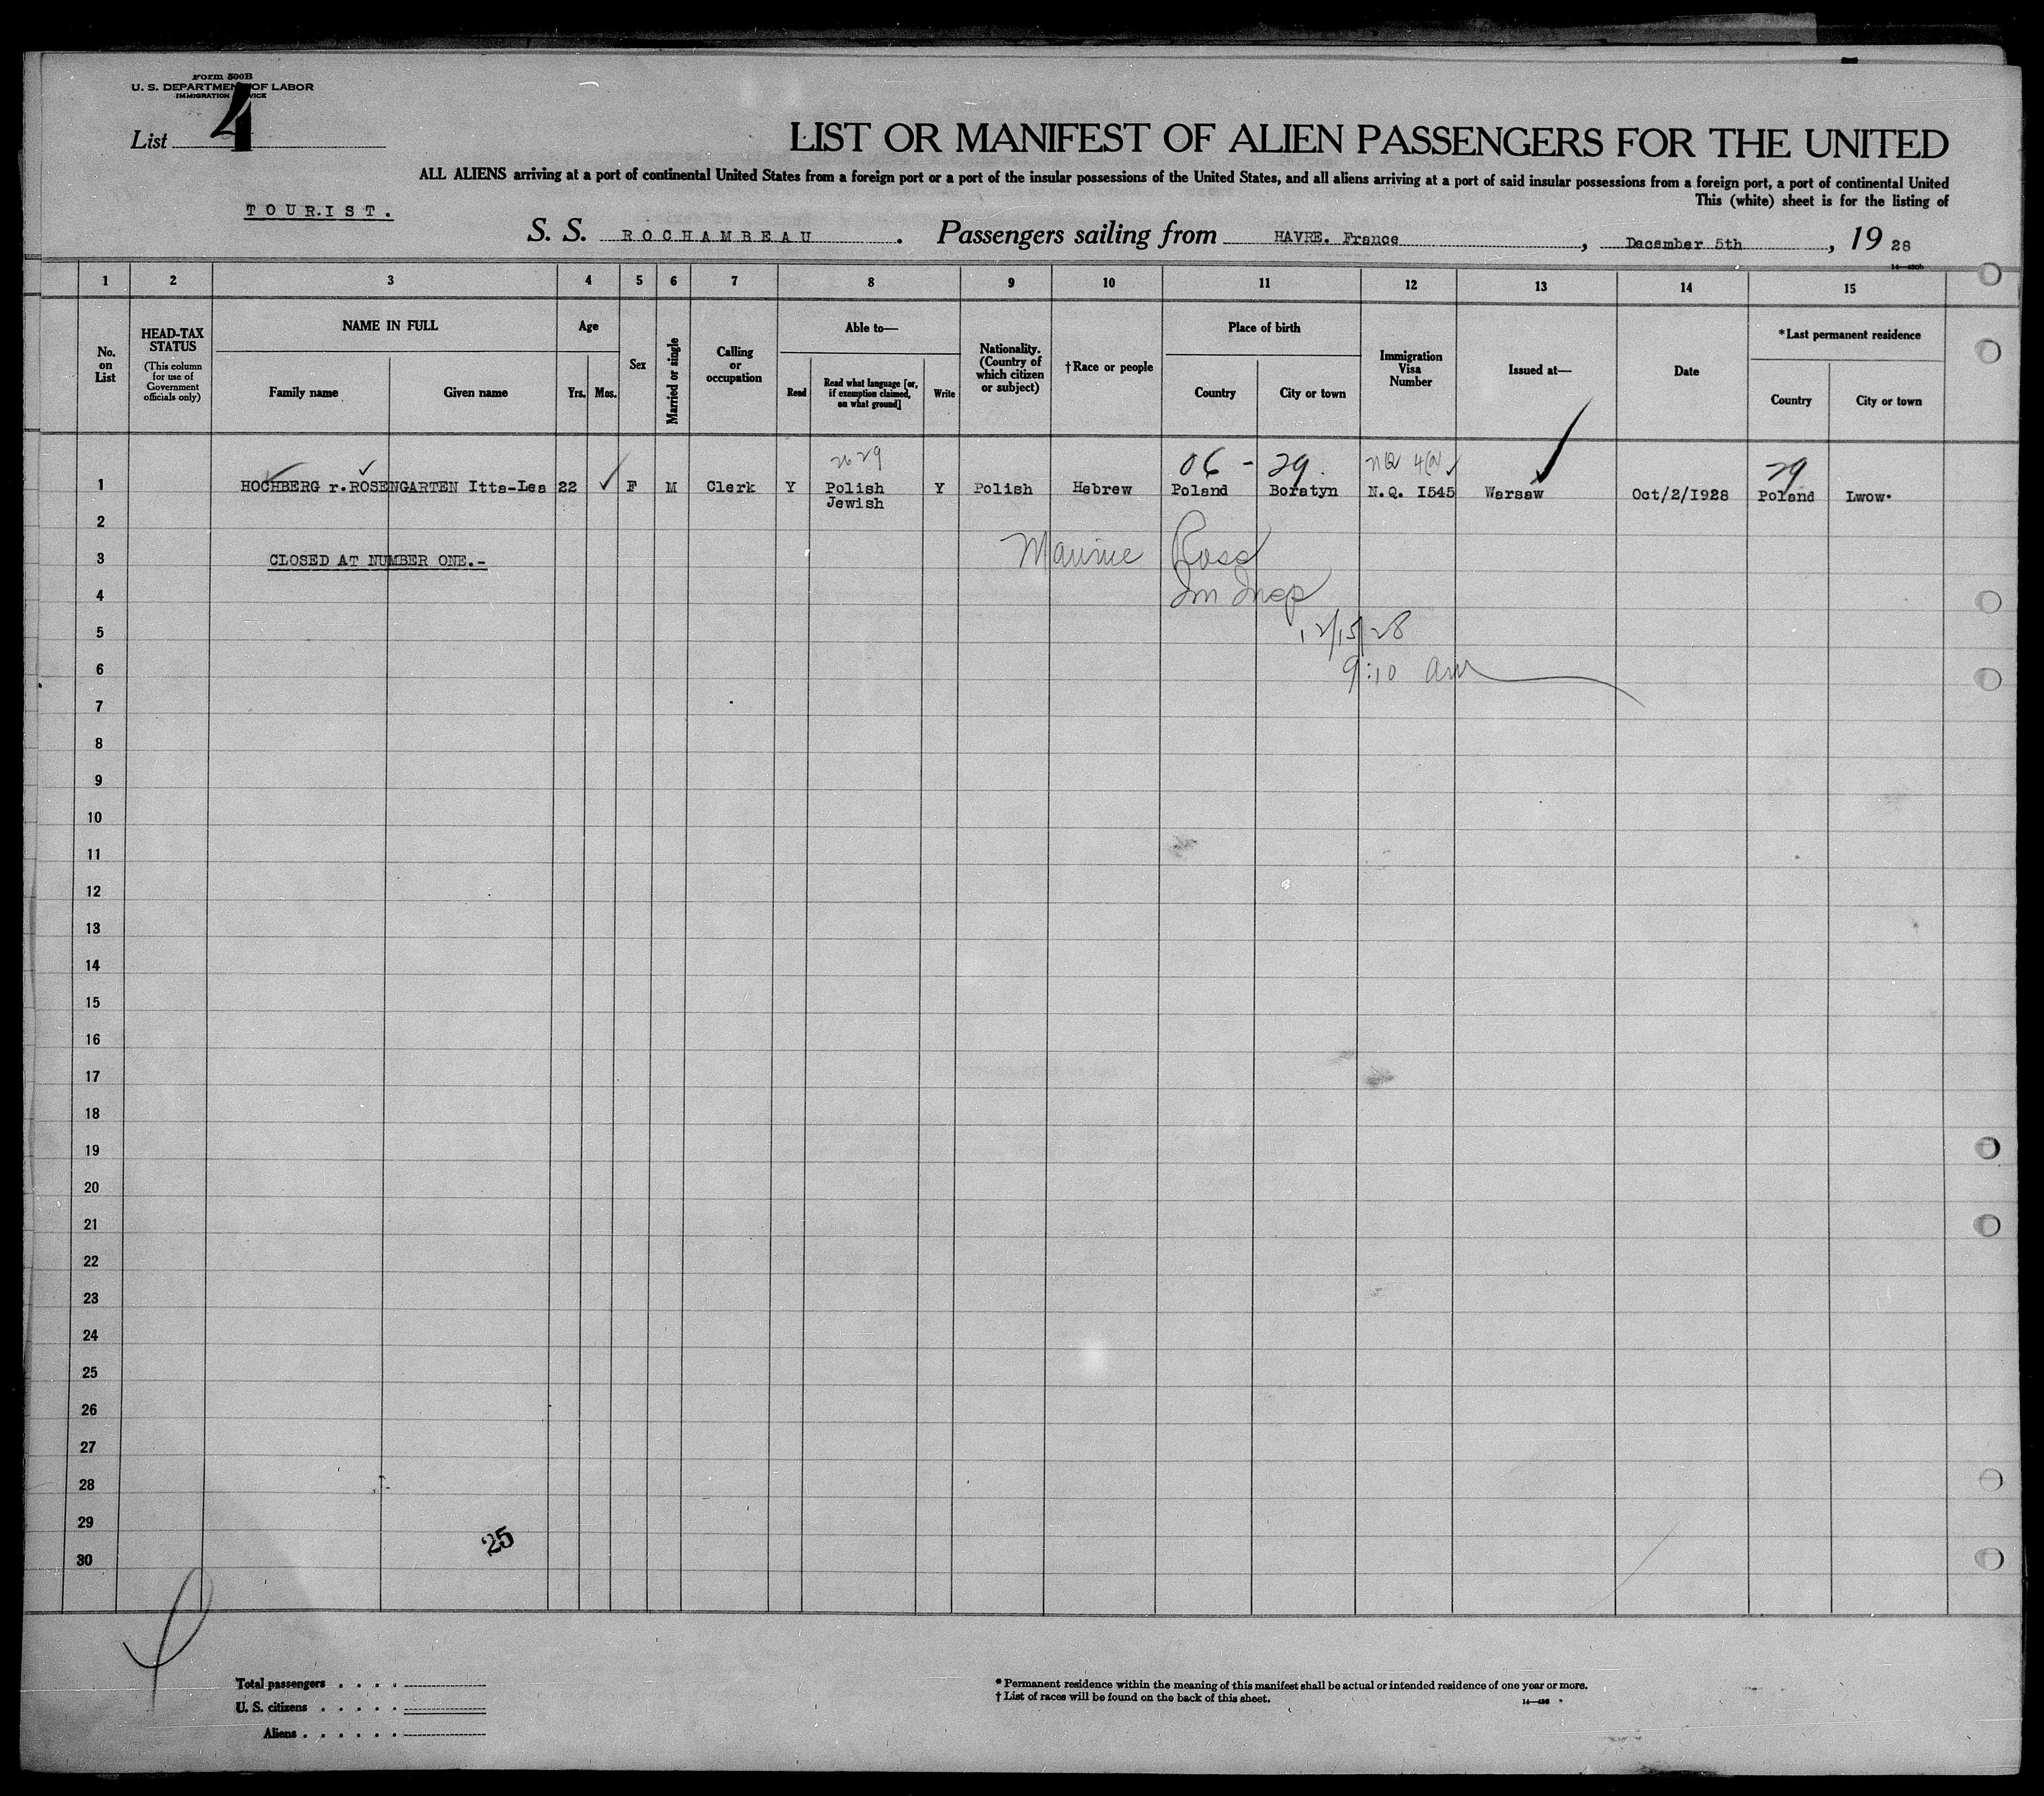 Form 500B
U. S. DEPARTMENT OF LABOR
IMMIGRATION SERVICE
List 4
LIST OR MANIFEST OF ALIEN PASSENGERS FOR THE UNITED
ALL ALIENS arriving at a port of continental United States from a foreign port or a port of the insular possessions of the United States, and all aliens arriving at a port of said insular possessions from a foreign port, a port of continental United
This (white) sheet is for the listing of
TOURIST.
S. S. ROCHAMBEAU. Passengers sailing from HAVRE. France, December 5th, 19 28
1 2 3 4 5 6 7 8 9 10 11 12 13 14 15
No. on List
HEAD-TAX STATUS
(This column for use of Government officials only)
NAME IN FULL
Family name Given name
Age
Yrs. Mos.
Sex
Married or single
Calling or occupation
Able to—
Read
Read what language [or, if exemption claimed, on what ground]
Write
Nationality. (Country of which citizen or subject)
†Race or people
Place of birth
Country City or town
Immigration Visa Number
Issued at—
Date
*Last permanent residence
Country City or town
06 - 29. 29
1 HOCHBERG r.ROSENGARTEN Itta-Lea 22 F M Clerk Y Polish Y Polish Hebrew Poland Boratyn N.Q. I545 Warsaw Oct/2/1928 Poland Lwow.
Jewish
2
Maurice Ross
3 CLOSED AT NUMBER ONE.-
4 Im Insp
5 12/15/28
6 9:10 am
7
8
9
10
11
12
13
14
15
16
17
18
19
20
21
22
23
24
25
26
27
28
29
25
30
Total passengers . . . .
U. S. citizens . . . . .
Aliens . . . . . .
* Permanent residence within the meaning of this manifest shall be actual or intended residence of one year or more.
† List of races will be found on the back of this sheet.